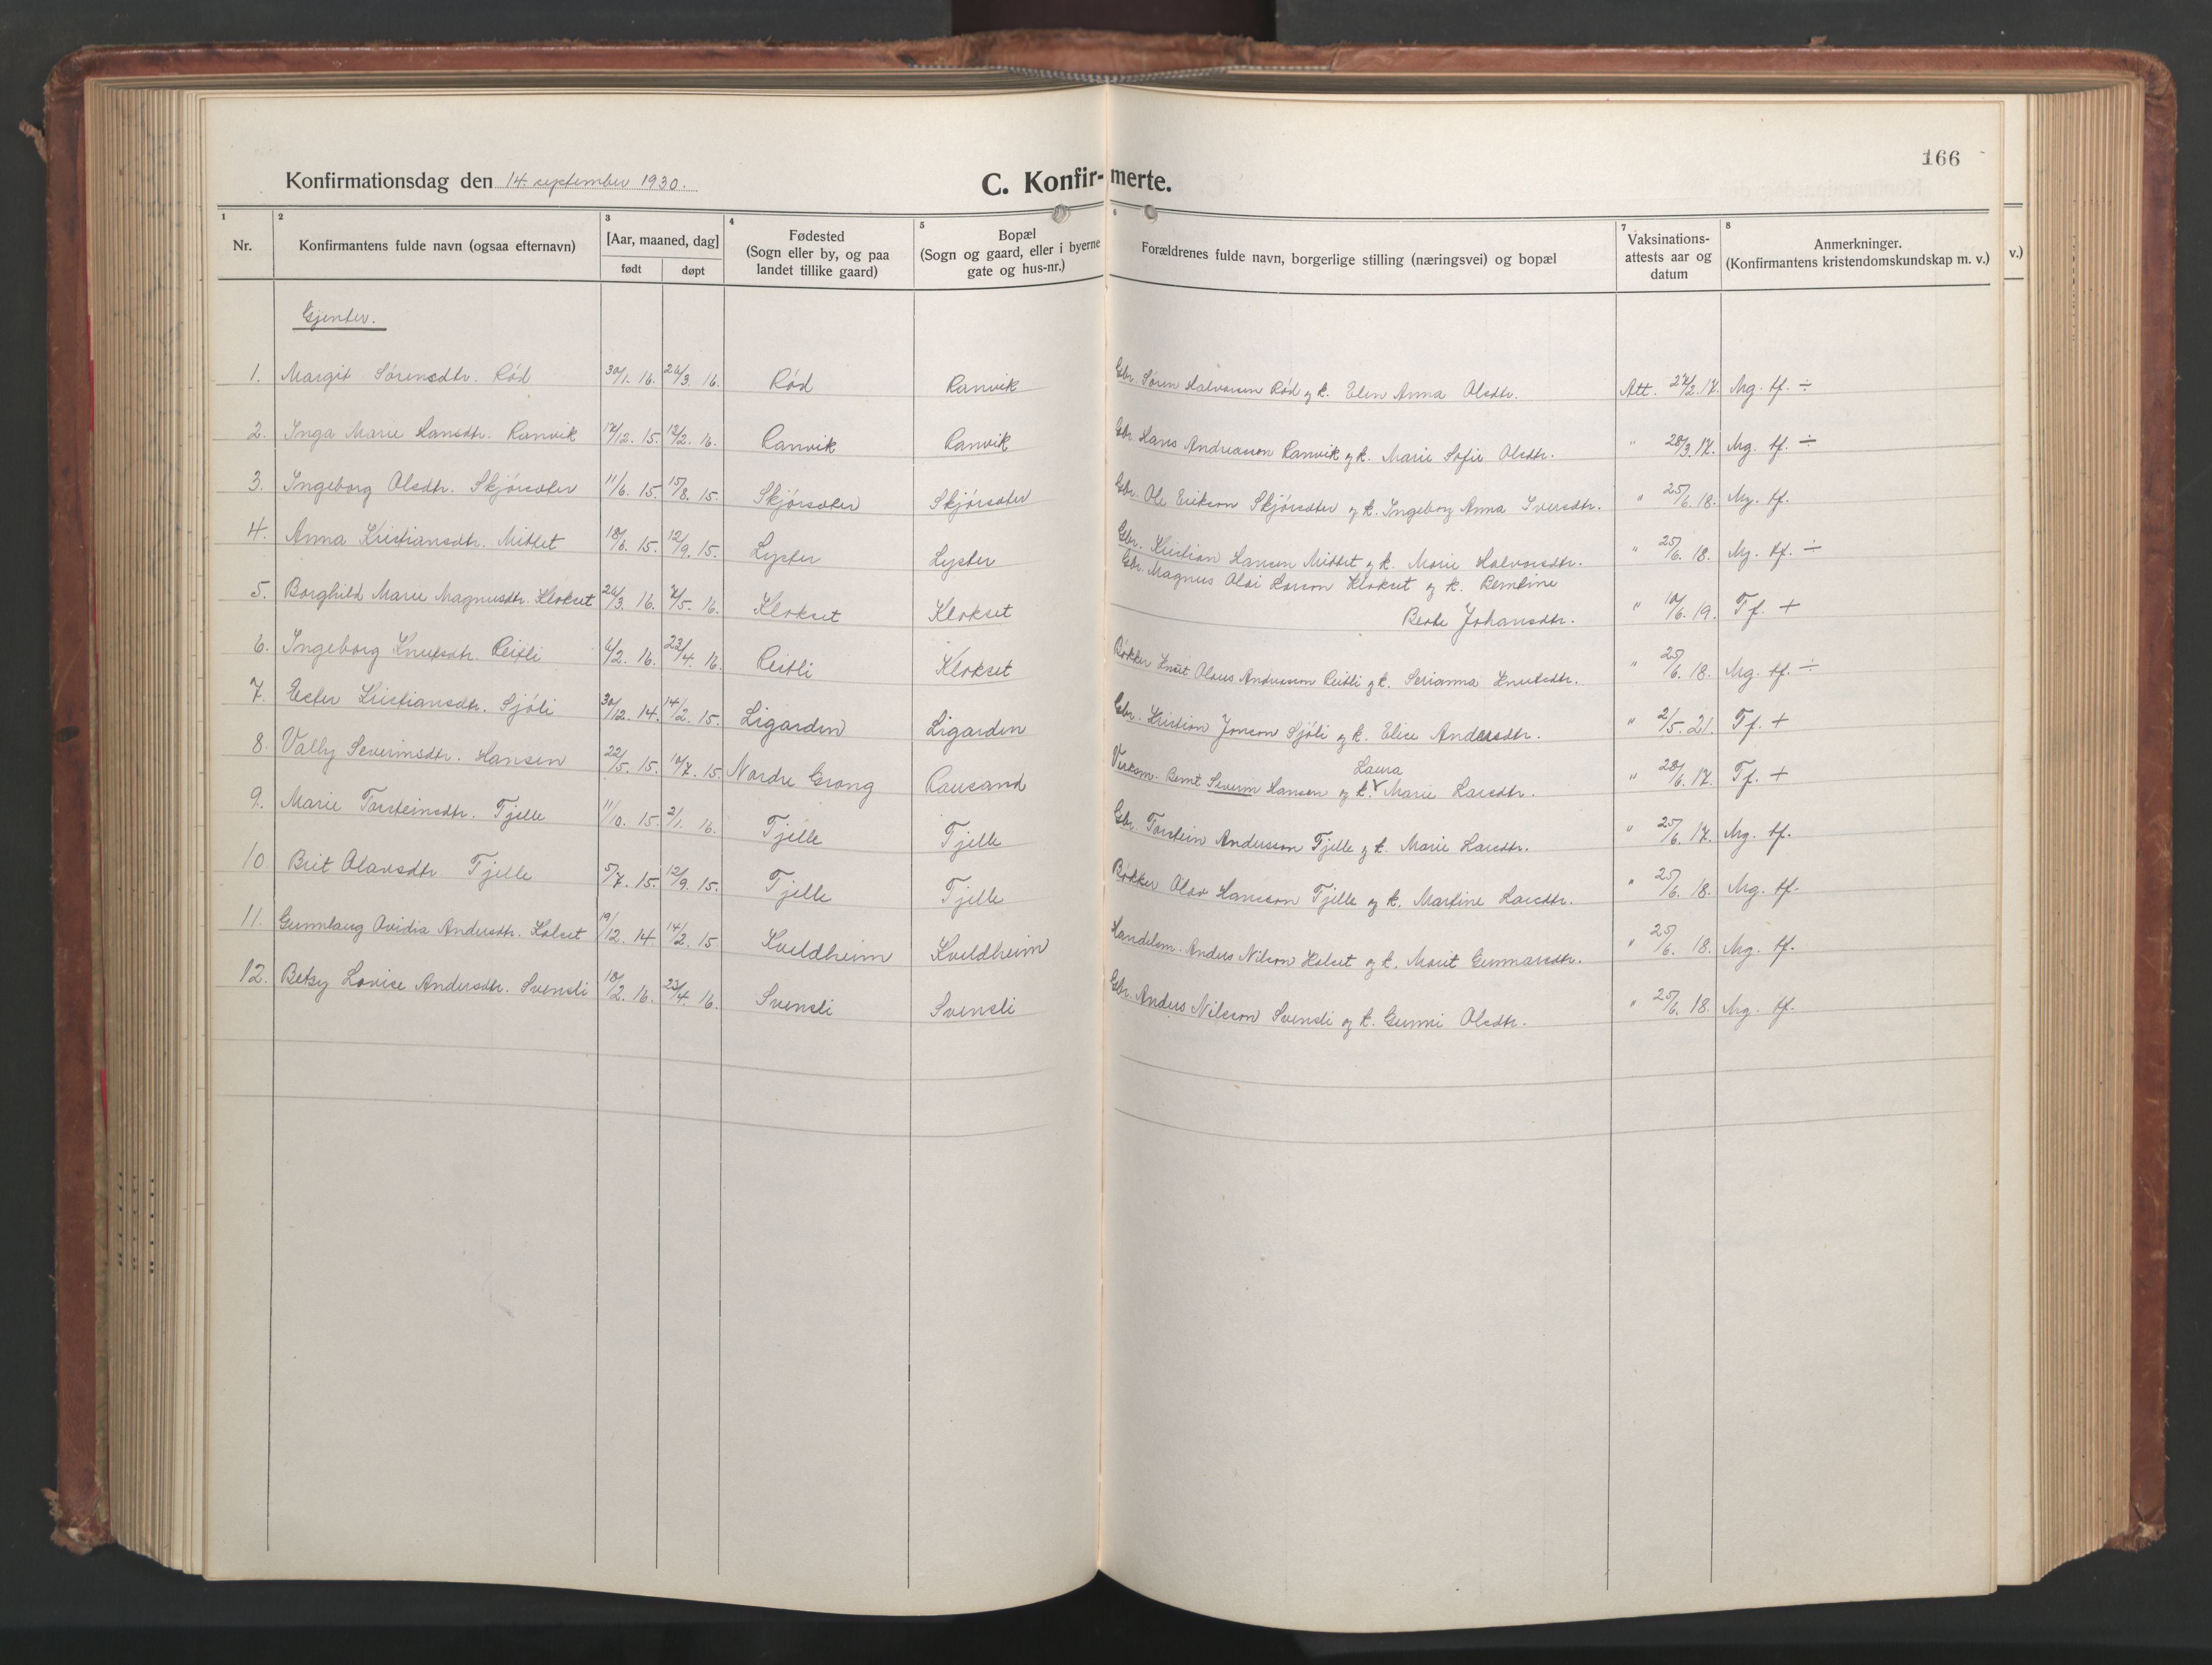 166
Konfirmationsdag den 14. september 1930.
C. Konfir-merte.
1 2 3 4 5 6 7 8
Nr. Konfirmantens fulde navn (ogsaa efternavn) [Aar, maaned, dag] født døpt Fødested (Sogn eller by, og paa landet tillike gaard) Bopæl (Sogn og gaard, eller i byerne gate og hus-nr.) Forældrenes fulde navn, borgerlige stilling (næringsvei) og bopæl Vaksinations-attests aar og datum Anmerkninger. (Konfirmantens kristendomskundskap m. v.) v.)
Gjenter.
1. Margit Sørensdtr. Rød 30/1. 16. 26/3. 16. Rød Ranvik Gbr. Søren Halvorsen Rød og k. Elen Anna Olsdtr. Att. 27/2. 17. Mg. tf. ÷
2. Inga Marie Hansdtr. Ranvik 17/12. 15. 13/2. 16. Ranvik Ranvik Gbr. Hans Andreassen Ranvik og k. Marie Sofie Olsdtr. " 28/3. 17. Mg. tf. ÷
3. Ingeborg Olsdtr. Skjørsæter 11/6. 15. 15/8. 15. Skjørsæter Skjørsæter Gbr. Ole Erikson Skjørsæter og k. Ingeborg Anna Iversdtr. " 25/6. 18. Mg. tf.
4. Anna Kristiansdtr. Mittet 18/6. 15. 12/9. 15. Lyster Lyster Gbr. Kristian Hansen Mittet og k. Marie Halvorsdtr. " 25/6. 18. Mg. tf. ÷
5. Borghild Marie Magnusdtr. Klokset 26/3. 16. 7/5. 16. Klokset Klokset Gbr. Magnus Olai Larson Klokset og k. Berntine
Berte Johansdtr. " 10/6. 19. Tf. +
6. Ingeborg Knutsdtr. Reitli 6/2. 16. 23/4. 16. Reitli Klokset Bøkker Knut Olaus Andreassen Reitli og k. Serianna Knutsdtr. " 25/6. 18. Mg. tf. ÷
7. Ester Kristiansdtr. Sjøli 30/12. 14. 14/2. 15. Ligarden Ligarden Gbr. Kristian Jonson Sjøli og k. Elise Andersdtr. " 2/5. 21. Tf. +
8. Vally Severinsdtr. Hansen 22/5. 15. 18/7. 15. Nordre Grong Rausand Verksm. Bernt Severin Hansen og k. Laura Marie Larsdtr. " 28/6. 17. Tf. +
9. Marie Torsteinsdtr. Tjelle 11/10. 15. 2/1. 16. Tjelle Tjelle Gbr. Torstein Andersson Tjelle og k. Marie Larsdtr. " 25/6. 17. Mg. tf.
10. Brit Olavsdtr. Tjelle 5/7. 15. 12/9. 15. Tjelle Tjelle Bøkker Olav Hansson Tjelle og k. Martine Larsdtr. " 25/6. 18. Mg. tf.
11. Gunnlaug Ovidia Andersdtr. Holset 19/12. 14 14/2. 15 Kveldheim Kveldheim Handelsm. Anders Nilson Holset og k. Marit Gunnarsdtr. " 25/6. 18. Mg. tf.
12. Betsy Lovise Andersdtr. Svensli 18/2. 16. 23/4. 16. Svensli Svensli Gbr. Anders Nilsson Svensli og k. Gunni Olsdtr. " 25/6. 18. Mg. tf.